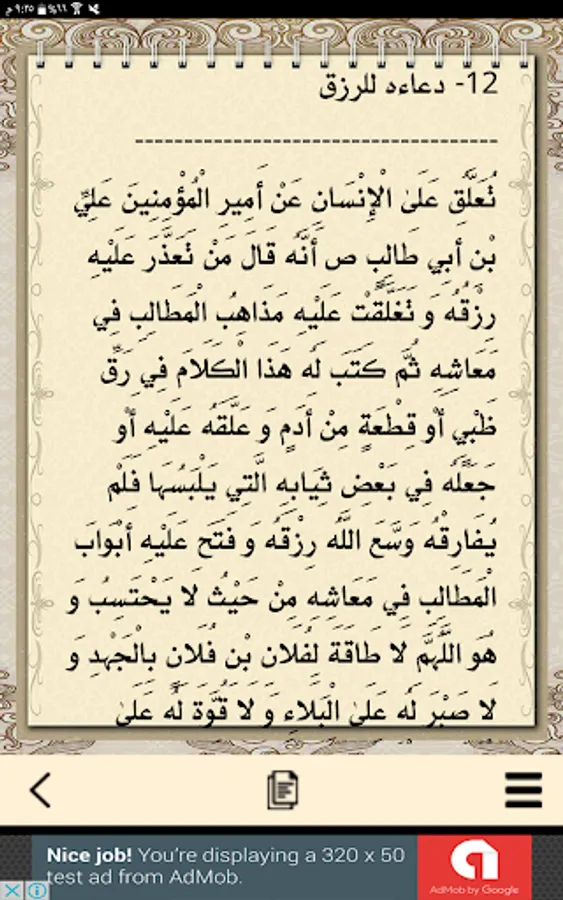 ٩:٢٥ م ٦٦%
12- دعاءه للرزق
------------------------------------
تُعَلَّقِ عَلَىٰ الْإِنْسَانِ عَنْ أَمِيرِ الْمُؤْمِنِينَ عَلِيِّ
بْنِ أَبِي طَالِبٍ ص أَنَّهُ قَالَ مَنْ تَعَذَّرَ عَلَيْهِ
رِزْقُهُ وَ تَغَلَّقَتْ عَلَيْهِ مَذَاهِبُ الْمَطَالِبِ فِي
مَعَاشِهِ ثُمَّ كَتَبَ لَهُ هَذَا الْكَلَامَ فِي رَقِّ
ظَبْيٍ أَوْ قِطْعَةٍ مِنْ أَدَمٍ وَ عَلَّقَهُ عَلَيْهِ أَوْ
جَعَلَهُ فِي بَعْضِ ثِيَابِهِ الَّتِي يَلْبَسُهَا فَلَمْ
يُفَارِقْهُ وَسَّعَ اللَّهُ رِزْقَهُ وَ فَتَحَ عَلَيْهِ أَبْوَابَ
الْمَطَالِبِ فِي مَعَاشِهِ مِنْ حَيْثُ لَا يَحْتَسِبُ وَ
هُوَ اللَّهُمَّ لَا طَاقَةَ لِفُلَانِ بْنِ فُلَانٍ بِالْجَهْدِ وَ
لَا صَبْرَ لَهُ عَلَىٰ الْبَلَاءِ وَ لَا قُوَّةَ لَهُ عَلَىٰ
Nice job! You're displaying a 320 x 50
test ad from AdMob.
AdMob by Google